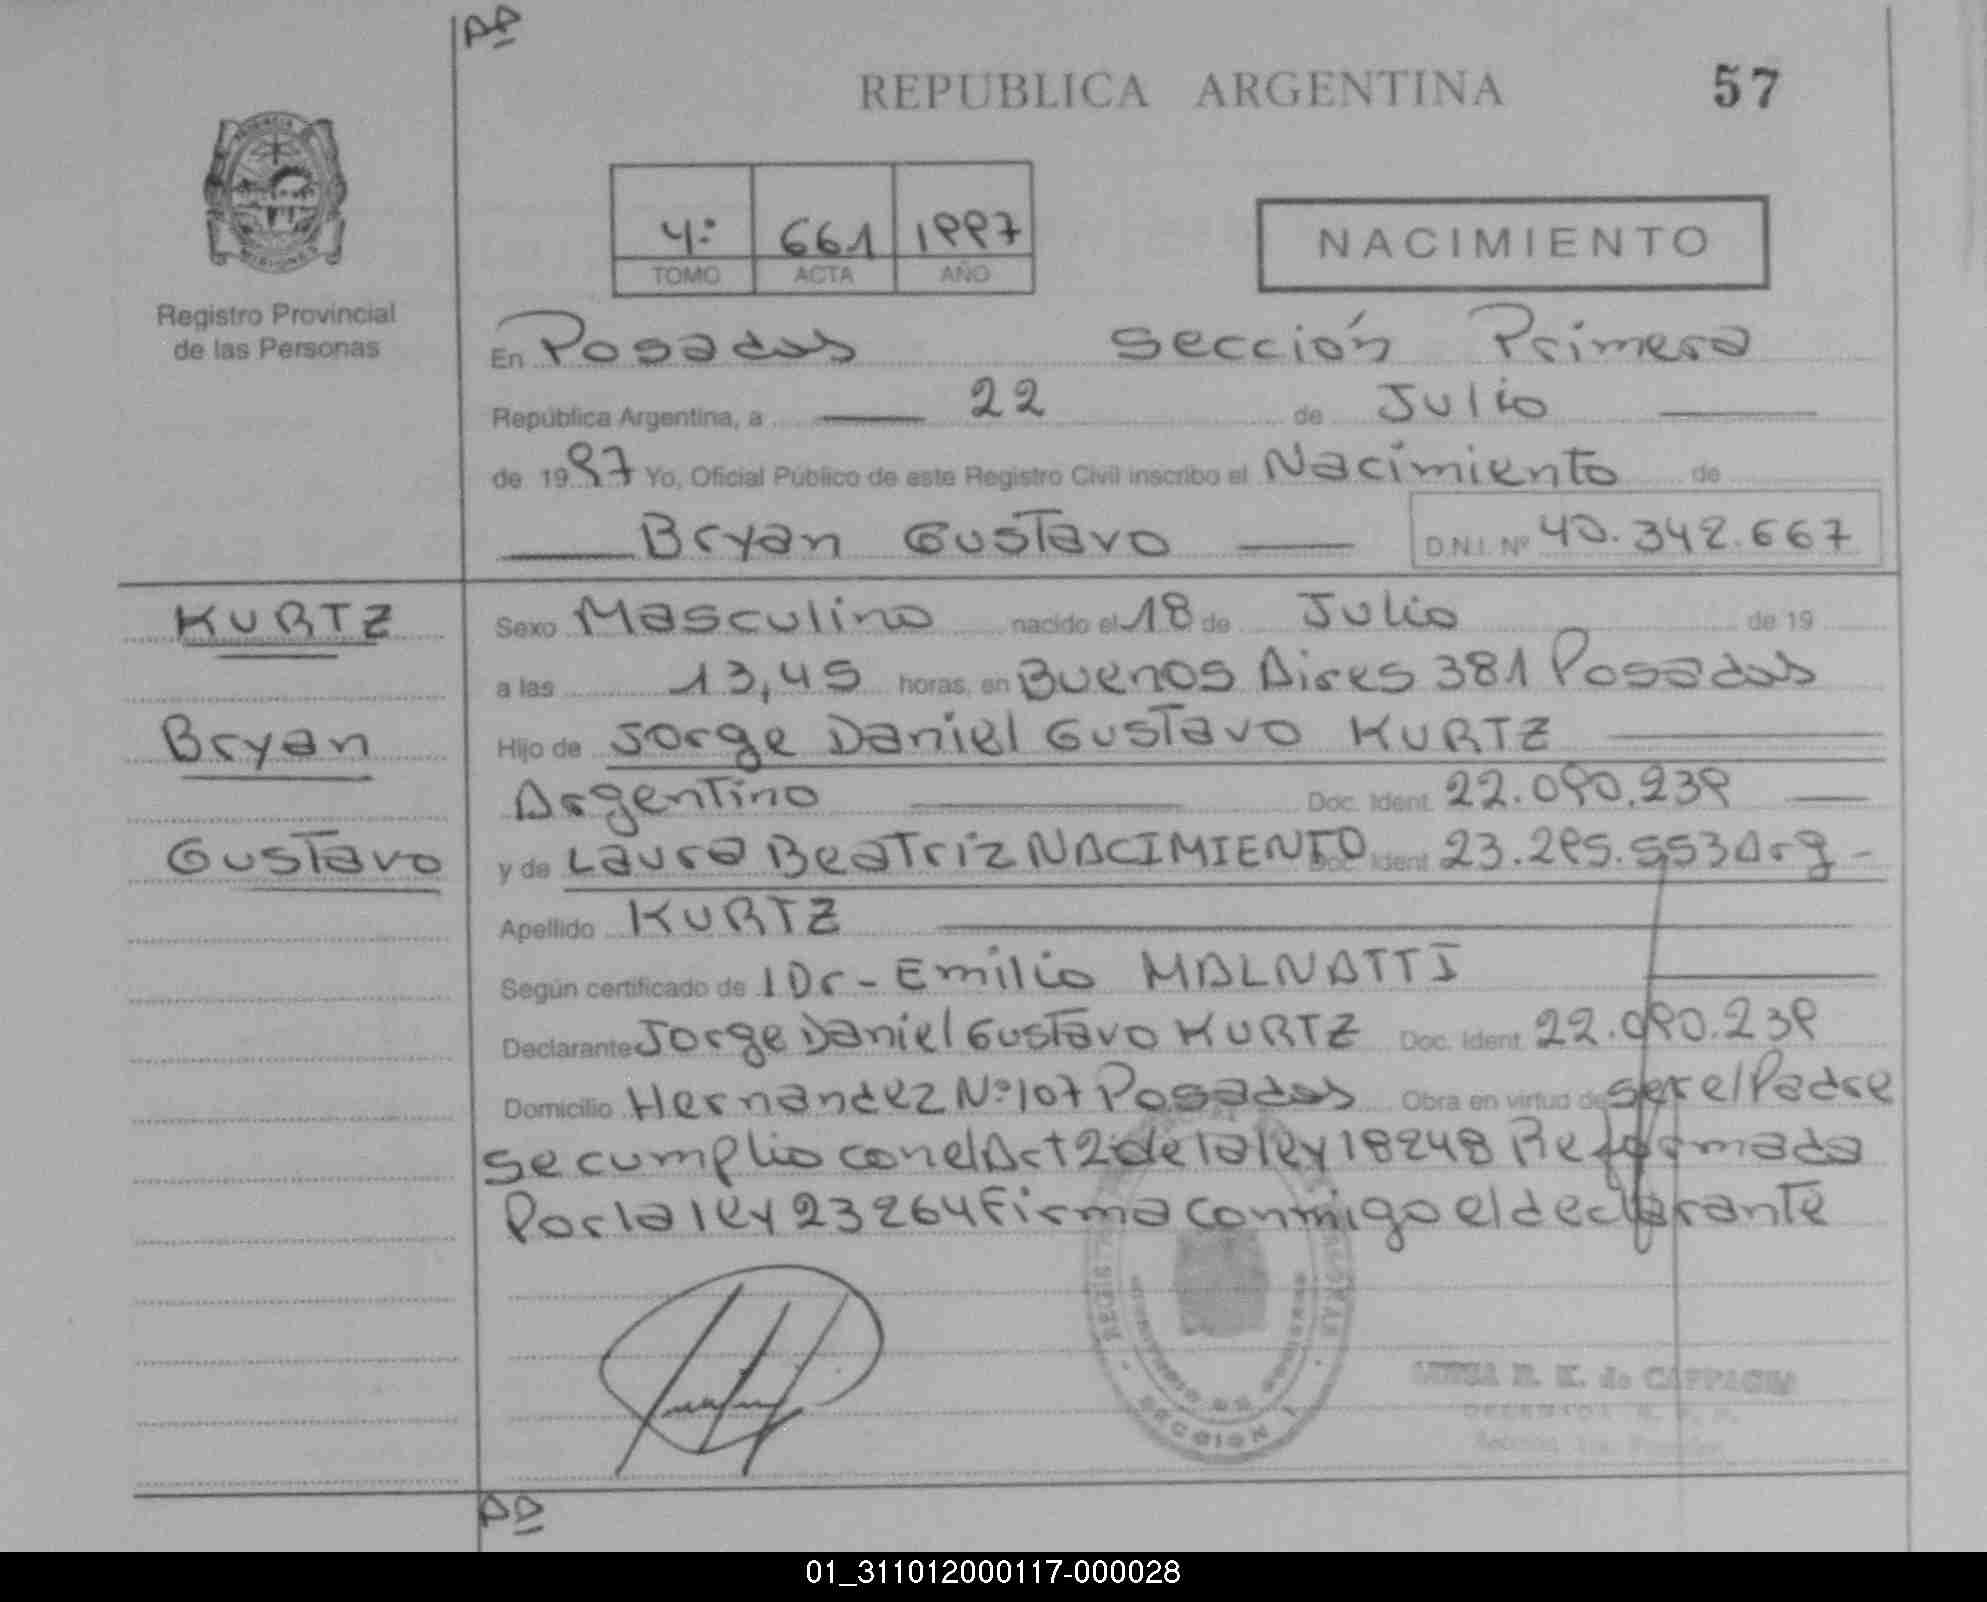 AP
REPUBLICA ARGENTINA 57
PROVINCIA
MISIONES
Registro Provincial
de las Personas
4º 661 1997
TOMO ACTA AÑO
NACIMIENTO
En Posadas sección Primera
República Argentina, a 22 de Julio
de 1997 Yo, Oficial Público de este Registro Civil inscribo el Nacimiento de
Bryan Gustavo D.N.I. Nº 40.342.667
KURTZ
Bryan
Gustavo
Sexo Masculino nacido el 18 de Julio de 19
a las 13,45 horas, en Buenos Aires 381 Posadas
Hijo de Jorge Daniel Gustavo KURTZ
Argentino Doc. Ident. 22.090.239
y de Laura Beatriz NACIMIENTO Doc. Ident. 23.295.553 Arg-
Apellido KURTZ
Según certificado de l Dr- Emilio MALNATTI
Declarante Jorge Daniel Gustavo KURTZ Doc. Ident. 22.090.239
Domicilio Hernandez Nº 107 Posadas Obra en virtud de ser el Padre
se cumplio con el Art 2 de la ley 18248 Reformada
Por la ley 23264 Firma conmigo el declarante
SECCION 1
de CAPPAGLI
01_311012000117-000028